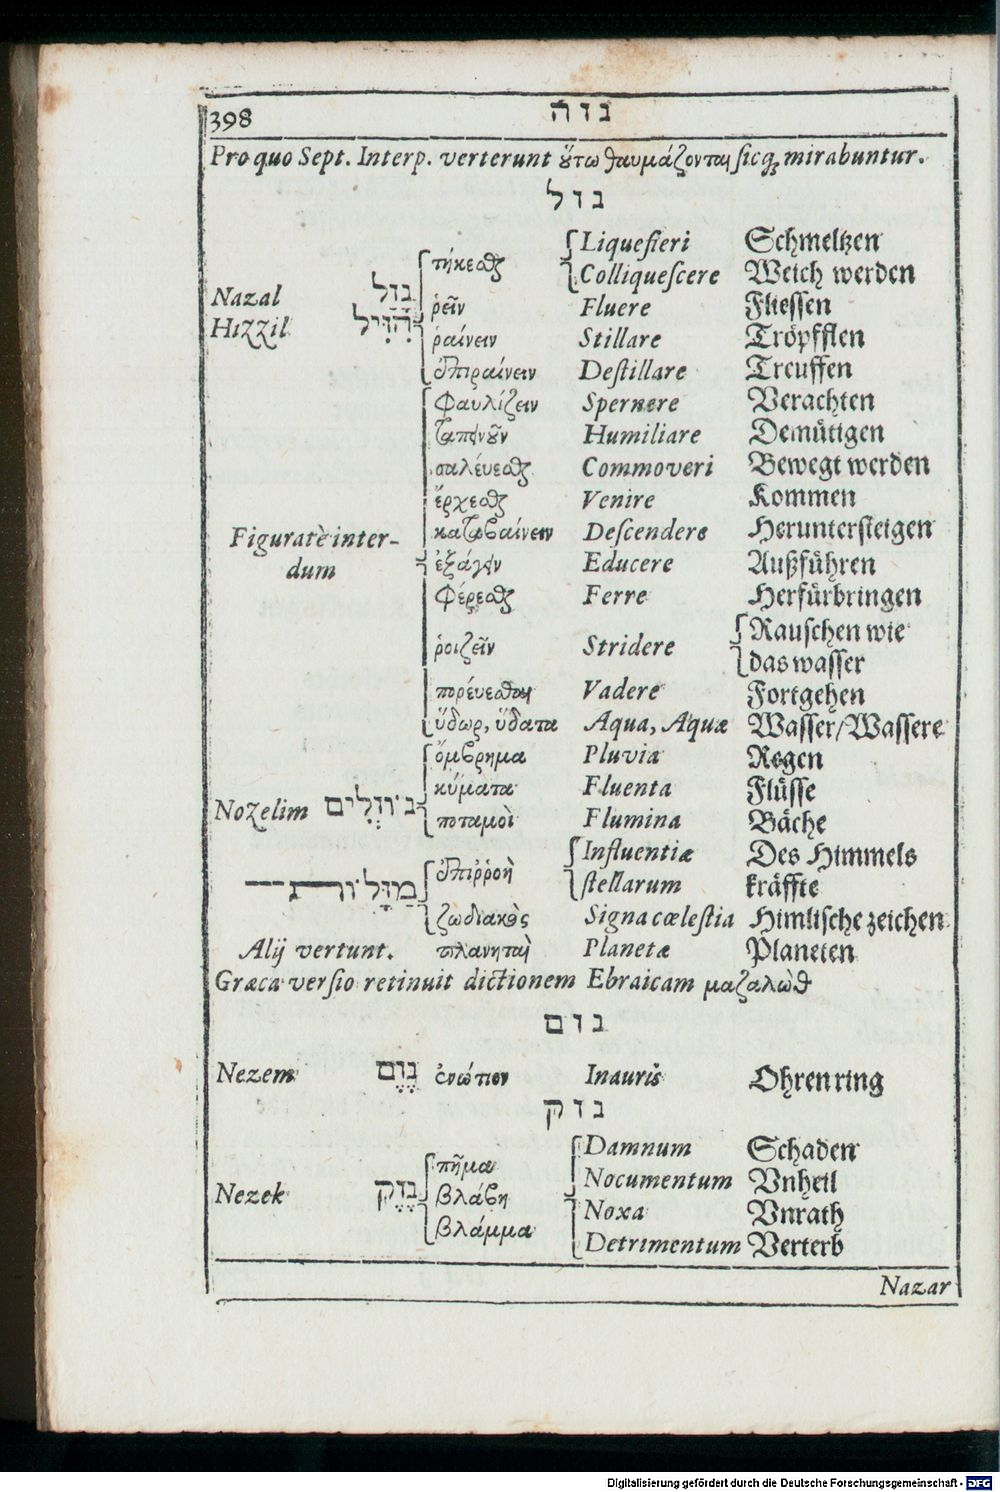 398 נזה
Pro quo Sept. Interp. verterunt ȣ̔́τω θαυμάζονται ſicq; mirabuntur.
נזל
Nazal נָזַל
Hizzil הִזִּיל
τήκεσθαι Liquefieri Schmeltzen
Colliqueſcere Weich werden
ῥεῖν Fluere Flieſſen
ῥαίνειν Stillare Tröpfflen
ἐπιραίνειν Deſtillare Treuffen
Figuratè inter-
dum
φαυλίζειν Spernere Verachten
ταπεινοῦν Humiliare Demütigen
σαλέυεσθαι Commoveri Bewegt werden
ἔρχεσθαι Venire Kommen
καταβαίνειν Deſcendere Herunterſteigen
ἐξάγειν Educere Außführen
φέρεσθαι Ferre Herfürbringen
ῥοιζεῖν Stridere Rauſchen wie
das waſſer
πορέυεσθαι Vadere Fortgehen
ὕδωρ, ὕδατα Aqua, Aquæ Waſſer/Waſſere
Nozelim נוֹזְלִים
ὄμβρημα Pluvia Regen
κύματα Fluenta Flüſſe
ποταμοὶ Flumina Bäche
מַזָּלוֹת
ἐπιῤῥοὴ Influentiæ Des Himmels
ſtellarum kräffte
ζωδιακὸς Signa cœleſtia Himliſche zeichen
Alij vertunt. πλανηταὶ Planetæ Planeten
Græca verſio retinuit dictionem Ebraicam μαζαλὼθ
נזם
Nezem נֶזֶם ἐνώτιον Inauris Ohrenring
נזק
Nezek נֶזֶק
πῆμα Damnum Schaden
βλάβη Nocumentum Vnheil
βλάμμα Noxa Vnrath
Detrimentum Verterb
Nazar
Digitalisierung gefördert durch die Deutsche Forschungsgemeinschaft - DFG